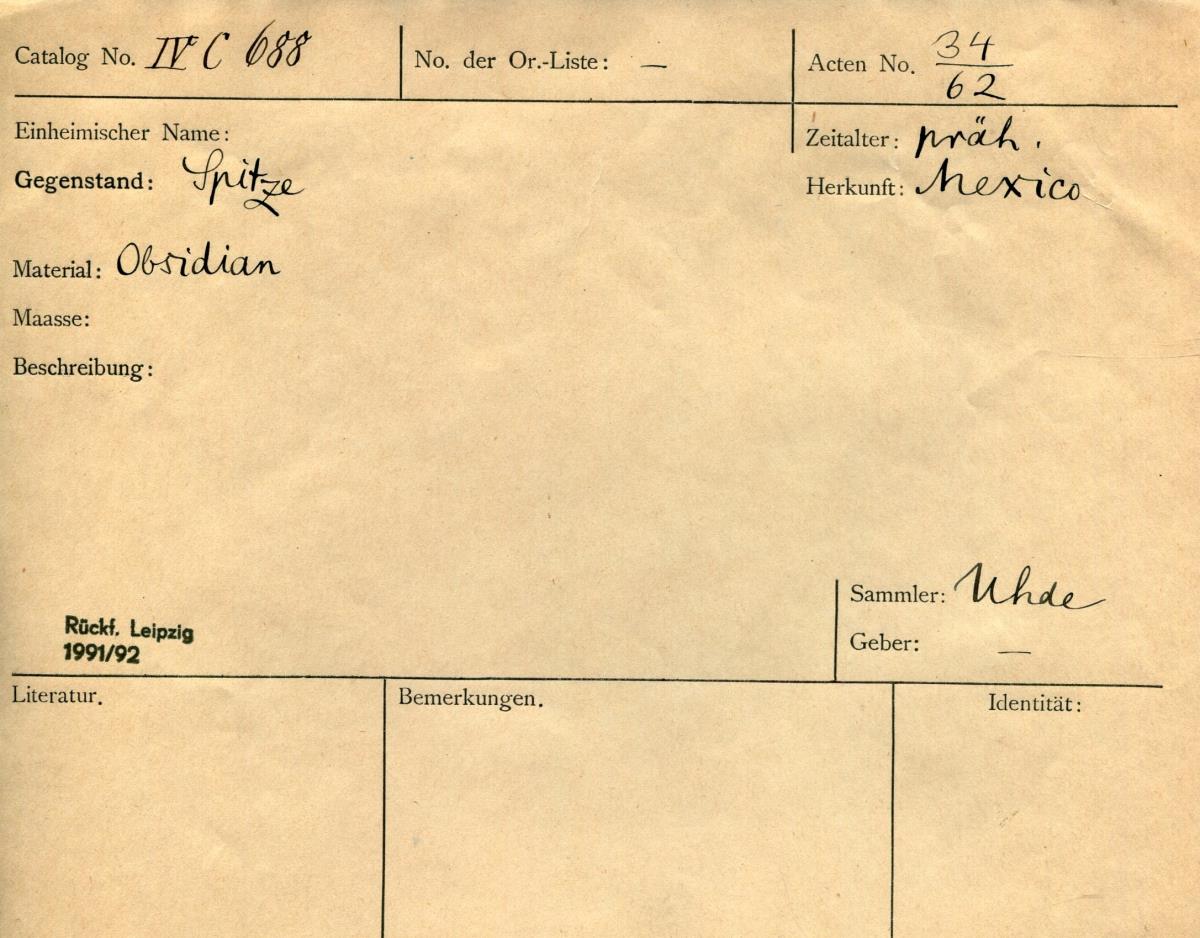 Catalog No. IV C 688
No. der Or.-Liste: —
Acten No. 34/62
Einheimischer Name:
Zeitalter: präh.
Gegenstand: Spitze
Herkunft: Mexico
Material: Obsidian
Maasse:
Beschreibung:
Sammler: Uhde
Geber: —
Rückf. Leipzig
1991/92
Literatur.
Bemerkungen.
Identität: